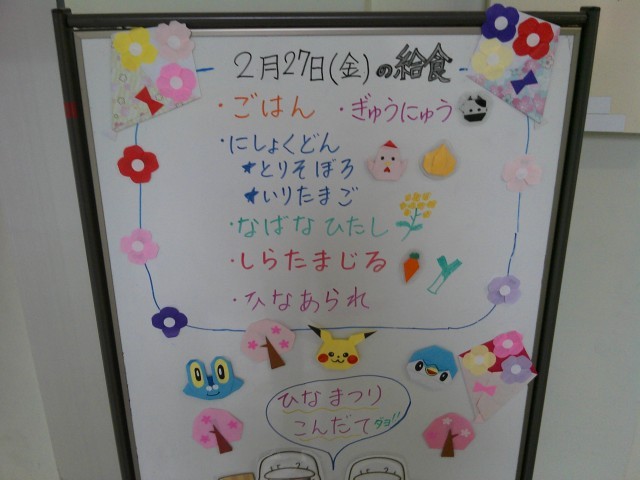 2月27日(金)の給食
・ごはん ・ぎゅうにゅう
・にしょくどん
★とりそぼろ
★いりたまご
・なばなひたし
・しらたまじる
・ひなあられ
ひなまつり
こんだてダヨ!!